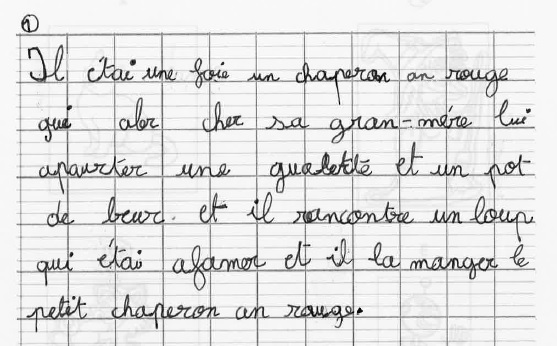 ①
Il étai une foie un chaperon an rouge
qui aler cher sa gran-mére lui
apaurter une et un pot
de beur. et il rancontre un loup
qui étai afamer et il la manger le
petit chaperon an rouge.